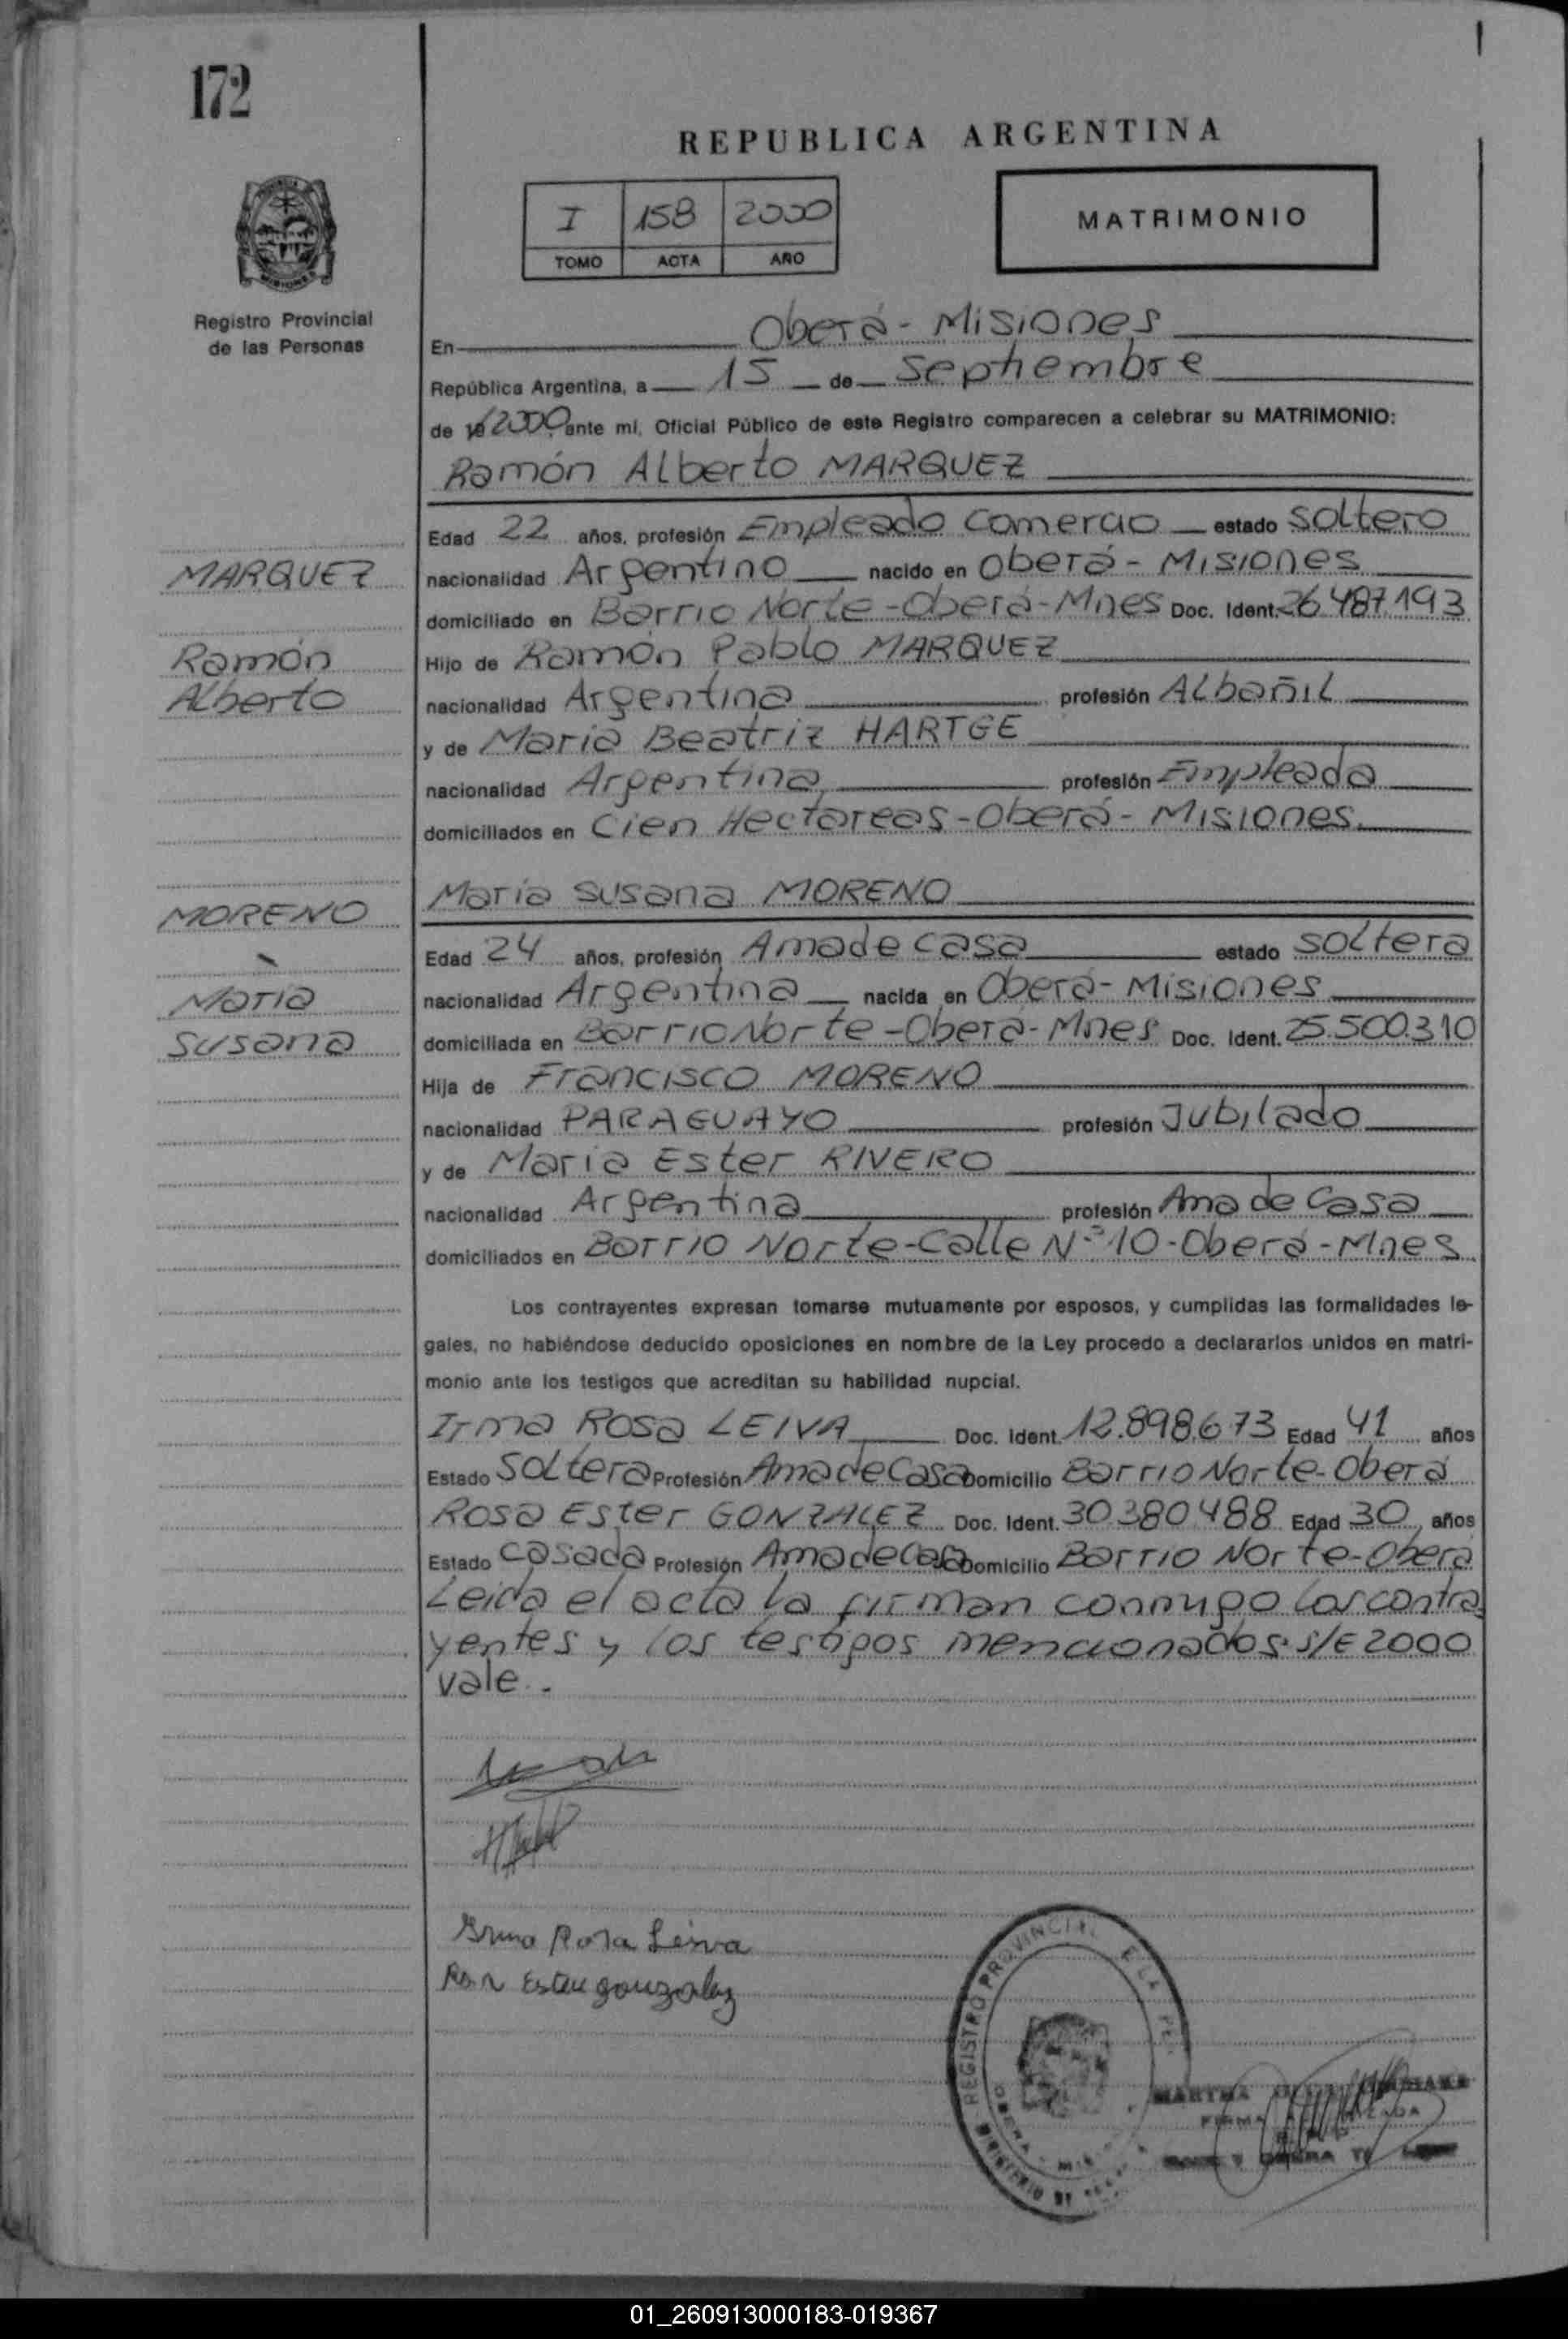 172
REPUBLICA ARGENTINA
I 158 2000
TOMO ACTA AÑO
MATRIMONIO
Registro Provincial
de las Personas
En Oberá - Misiones
República Argentina, a 15 de Septiembre
de 19 2000 ante mí, Oficial Público de este Registro comparecen a celebrar su MATRIMONIO:
Ramón Alberto MARQUEZ
Edad 22 años, profesión Empleado Comercio estado soltero
MARQUEZ
nacionalidad Argentino nacido en Oberá - Misiones
domiciliado en Barrio Norte - Oberá - Mnes Doc. Ident. 26.487.193
Ramón
Hijo de Ramón Pablo MARQUEZ
Alberto
nacionalidad Argentina profesión Albañil
y de Maria Beatriz HARTGE
nacionalidad Argentina profesión Empleada
domiciliados en Cien Hectareas - Oberá - Misiones.
María Susana MORENO
MORENO
Edad 24 años, profesión Ama de casa estado soltera
María
nacionalidad Argentina nacida en Oberá - Misiones
Susana
domiciliada en Barrio Norte - Oberá - Mnes Doc. Ident. 25.500.310
Hija de Francisco MORENO
nacionalidad PARAGUAYO profesión Jubilado
y de Maria Ester RIVERO
nacionalidad Argentina profesión Ama de Casa
domiciliados en Barrio Norte - Calle Nº 10 - Oberá - Mnes
Los contrayentes expresan tomarse mutuamente por esposos, y cumplidas las formalidades le-
gales, no habiéndose deducido oposiciones en nombre de la Ley procedo a declararlos unidos en matri-
monio ante los testigos que acreditan su habilidad nupcial.
Irma Rosa LEIVA Doc. Ident. 12.898.673 Edad 41 años
Estado Soltera Profesión Ama de Casa Domicilio Barrio Norte - Oberá
Rosa Ester GONZALEZ Doc. Ident. 30.380.488 Edad 30 años
Estado Casada Profesión Ama de Casa Domicilio Barrio Norte - Oberá
Leída el acta la firman conmigo los contra
yentes y los testigos mencionados. s/E 2000
vale.
Irma Rosa Leiva
Rosa Ester gonzalez
REGISTRO PROVINCIAL
MARTHA
FIRMA
01_260913000183-019367